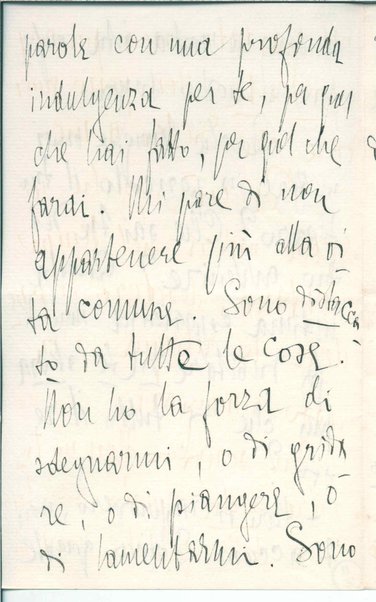 parole con una profonda
indulgenza per te, per quel
che hai fatto, per quel che
farai. Mi pare di non
appartenere più alla vi
ta comune. Sono distacca
to da tutte le cose.
Non ho la forza di
sdegnarmi, o di grida
re, o di piangere, o
di lamentarmi. Sono